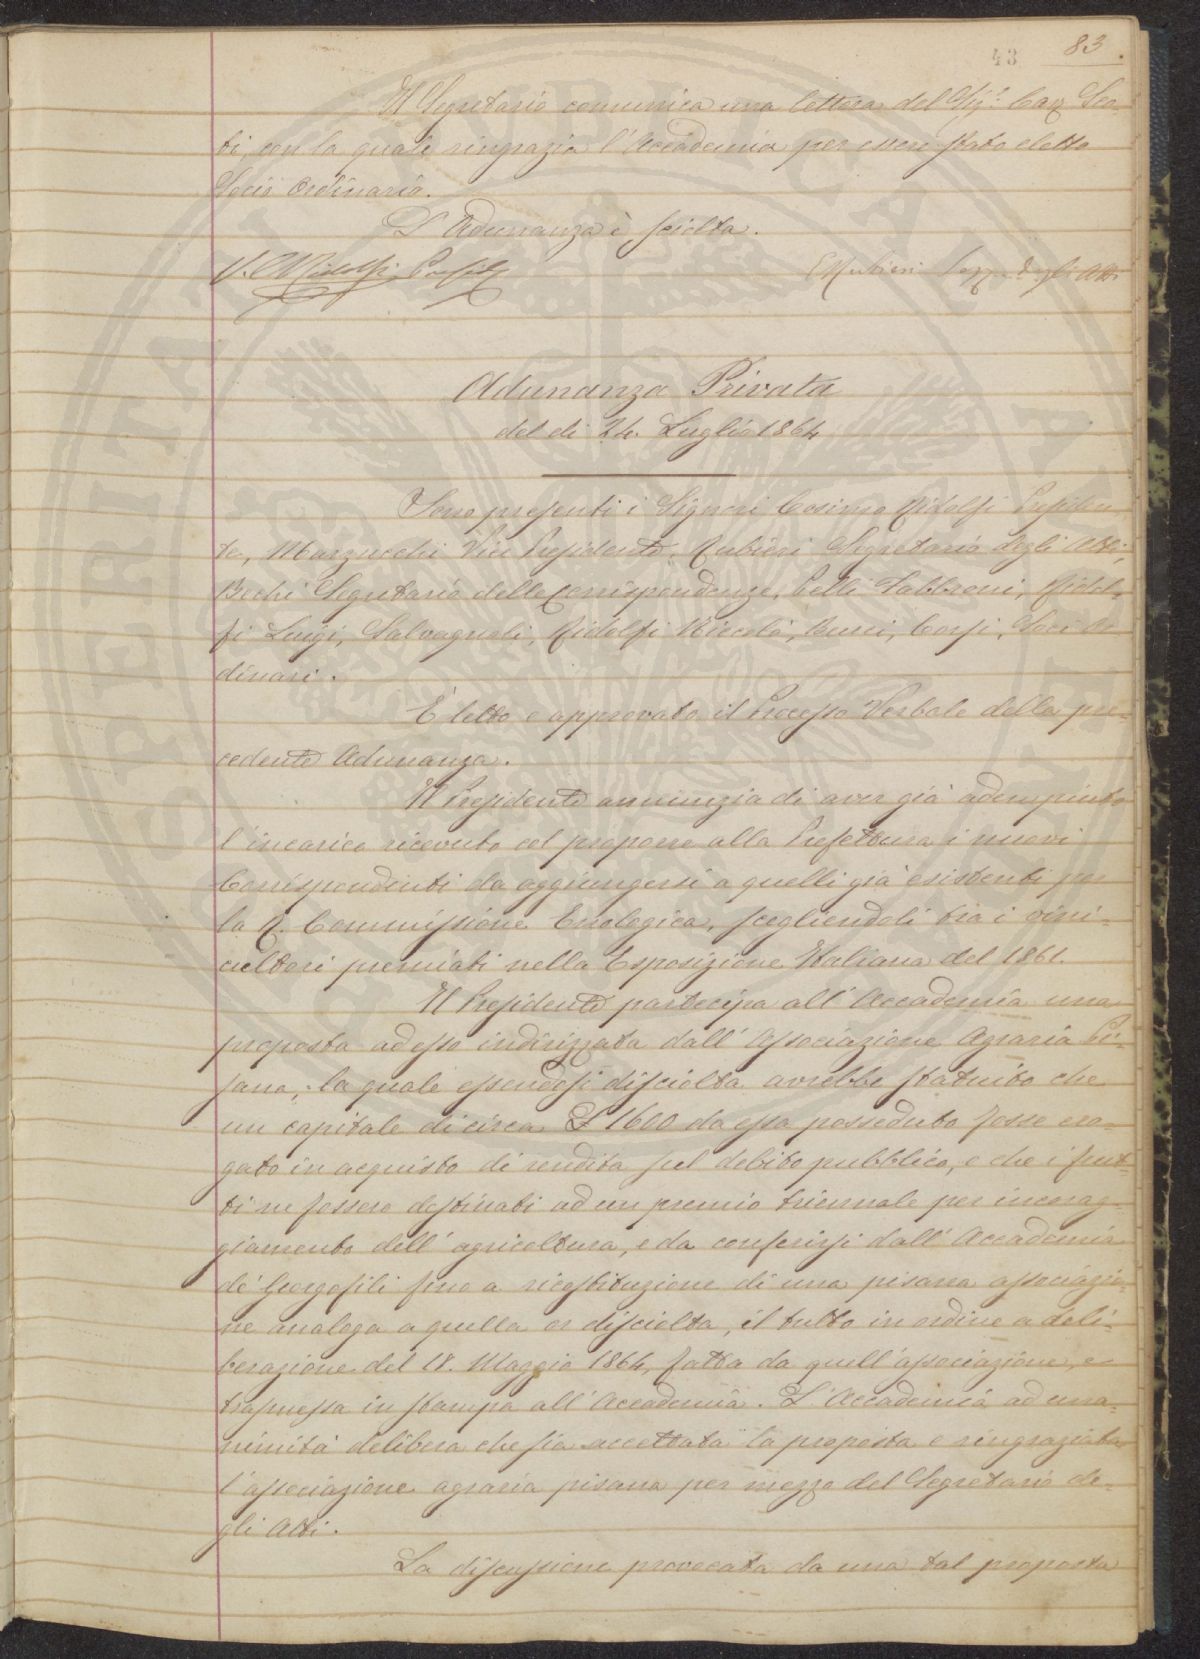 43 83.
Il Segretario comunica una lettera del Sig.r Cav. Sco-
ti, con la quale ringrazia l'Accademia per essere stato eletto
Socio Ordinario.
L'Adunanza è sciolta.
C. Ridolfi Rubieri Segr. degli Atti
Adunanza Privata
del dì 24. Luglio 1864
Sono presenti i Signori Cosimo Ridolfi Presiden
te, Marzucchi Vice Presidente, Rubieri Segretario degli Atti,
Bechi Segretario delle Corrispondenze, Pelli Fabbroni, Ridol-
fi Luigi, Salvagnoli, Ridolfi Niccolò, Cuuri, Corsi, Soci Or
dinari.
È letto e approvato il Processo Verbale della pre-
cedente Adunanza.
Il Presidente annunzia di aver già adempiuto
l'incarico ricevuto col proporre alla Prefettura i nuovi
Corrispondenti da aggiungersi a quelli già esistenti per
la R. Commissione Enologica, scegliendoli tra i vini-
cultori premiati nella Esposizione Italiana del 1861.
Il Presidente partecipa all'Accademia una
proposta ad esso indirizzata dall'Associazione Agraria Pi-
sana, la quale essendosi disciolta avrebbe statuito che
un capitale di circa £ 1600 da essa posseduto fosse ero-
gato in acquisto di rendita sul debito pubblico, e che i frut-
ti ne fossero destinati ad un premio triennale per incorag-
giamento dell'agricoltura, e da conferirsi dall'Accademia
de' Georgofili fino a ricostituzione di una pisana associazio-
ne analoga a quella or disciolta, il tutto in ordine a deli-
berazione del 18. Maggio 1864, fatta da quell'associazione, e
trasmessa in stampa all'Accademia. L'Accademia ad una-
nimità delibera che sia accettata la proposta e ringraziata
l'associazione agraria pisana per mezzo del Segretario de-
gli Atti.
La discussione provocata da una tal proposta